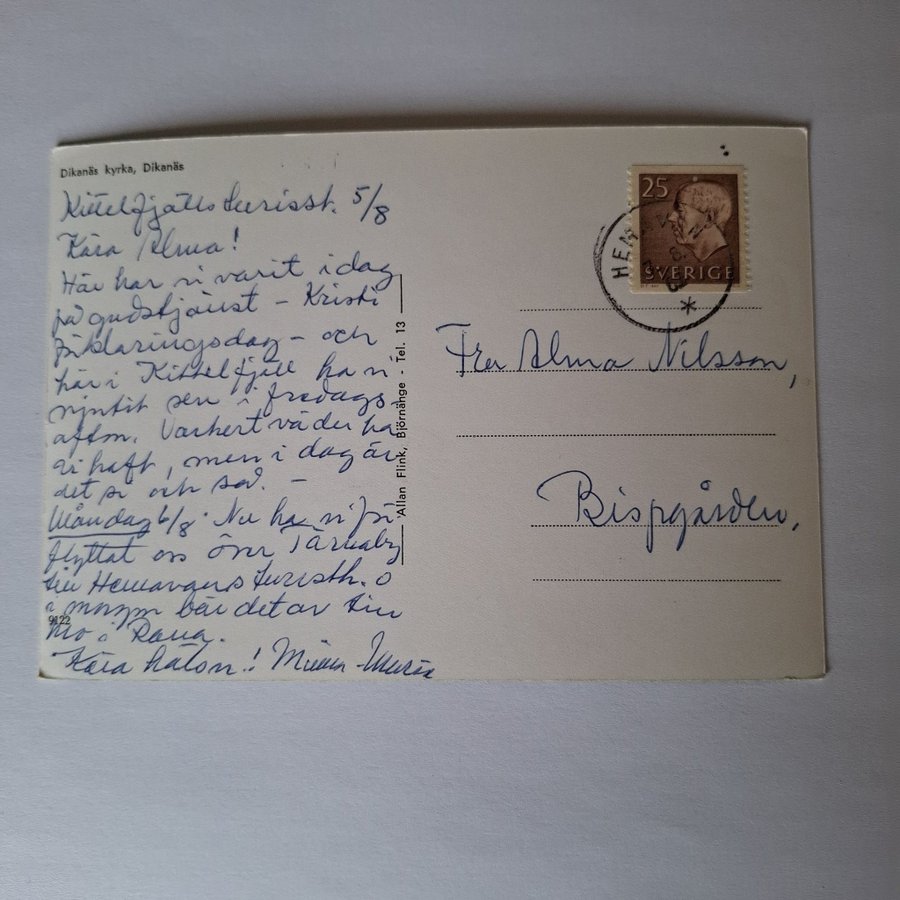 Dikanäs kyrka, Dikanäs
Kittelfjälls turistst. 5/8
Kära Alma!
Här har vi varit idag
på gudstjänst - Kristi
förklaringsdag - och
här i Kittelfjäll ha vi
njutit sen i fredags
afton. Vackert väder ha
vi haft, men i dag är
det si och så. -
Måndag 6/8. Nu ha vi
flyttat oss över Tärnaby
till Hemavans turisth. o
i morgon bär det av till
Mo i Rana.
Kära hälsn.!
9122
Allan Flink, Björnänge - Tel. 13
25
SVERIGE
HEM
Fru Alma Nilsson,
Bispgården,